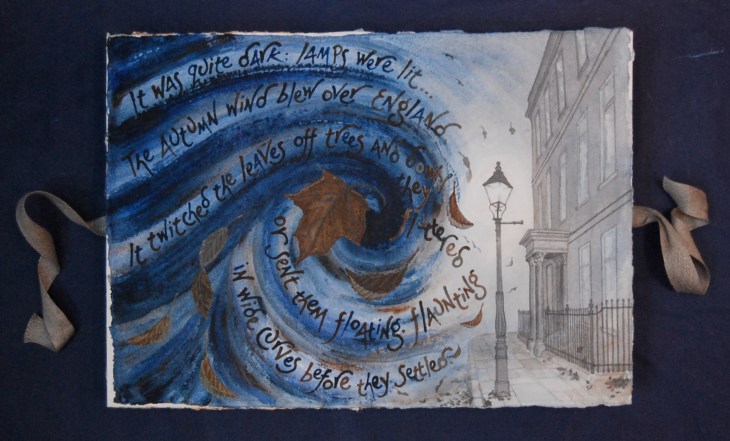 It was quite dark: lamps were lit...
The autumn wind blew over England
It twitched the leaves off trees and down
they
ttered
or sent them floating: flaunting
in wide curves before they settled